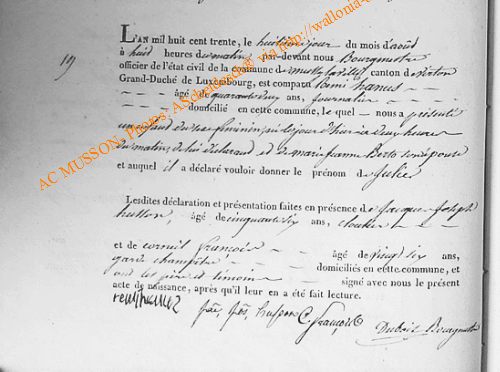 19
L'AN mil huit cent trente, le huitième jour du mois d'août
à huit heures du matin par-devant nous Bourgmestre
officier de l'état civil de la commune de canton de virton
Grand-Duché de Luxembourg, est comparu hanus
âgé de quarante deux ans, journalier
domicilié en cette commune, le quel nous a présenté
un enfant du sexe féminin, né le jour d'hier à deux heures
du matin, de lui déclarant et de marie jeanne son épouse
et auquel il a déclaré vouloir donner le prénom de Julie
Lesdites déclaration et présentation faites en présence de Jacques Joseph
husson, âgé de cinquante six ans, cloutier
et de corneil françois âgé de vingt six ans,
garde champêtre domiciliés en cette commune, et
ont les père et témoins signé avec nous le présent
acte de naissance, après qu'il leur en a été fait lecture.
C françois
Dubois Bourgmestre
AC MUSSON, Photos: http://wallonia-